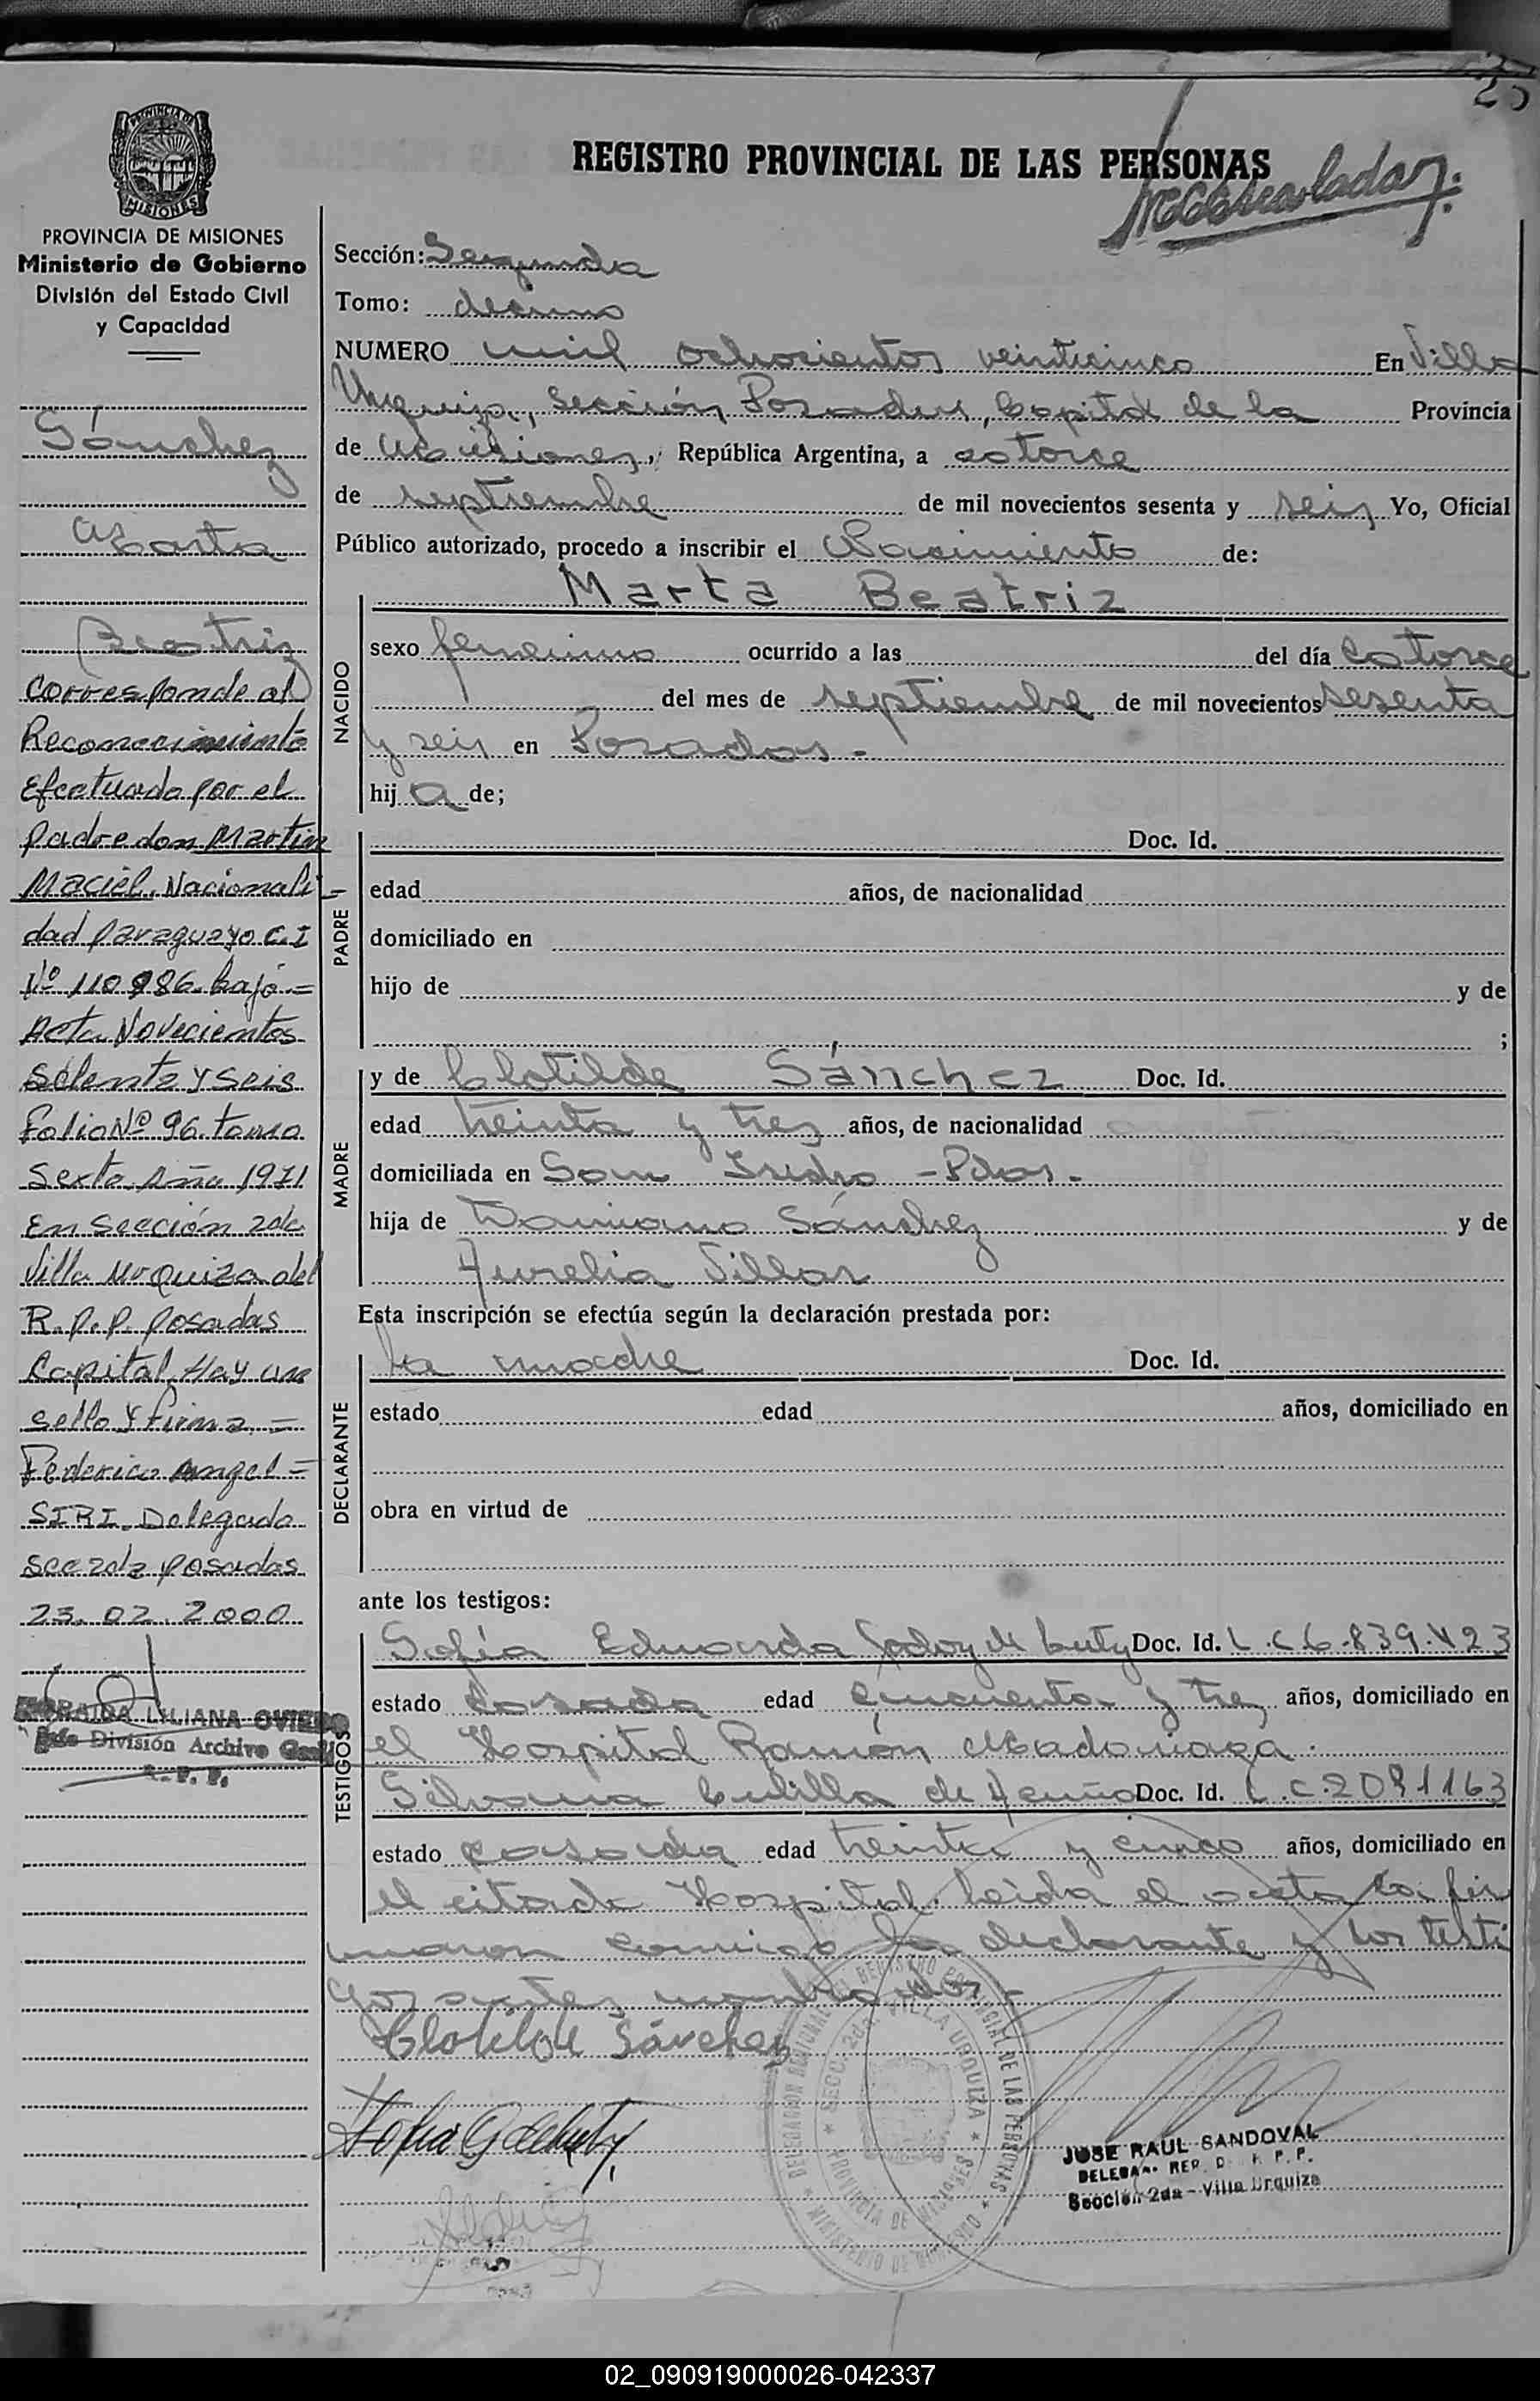 25
PROVINCIA DE
MISIONES
REGISTRO PROVINCIAL DE LAS PERSONAS
PROVINCIA DE MISIONES
Ministerio de Gobierno
División del Estado Civil
y Capacidad
Sánchez
Marta
Beatriz
Corresponde al
Reconocimiento
Efectuado por el
padre don Martin
Maciel. Nacionali-
dad paraguayo C.I
Nº 110986. bajo =
Acta Novecientos
Setenta y Seis
folio Nº 96. tomo
Sexto Año 1971
En Sección 2da
Villa Urquiza del
R.P.P. posadas
Capital. Hay un
sello y firma. =
Federico Angel =
SIRI. Delegado
Scc 2da posadas
23.02.2000
LILIANA OVIEDO
Jefe División Archivo Gral
R.P.P.
Sección: Segunda
Tomo: decimo
NUMERO mil ochocientos veinticinco En Villa
Urquiza, sección Posadas, Capital de la Provincia
de Misiones, República Argentina, a catorce
de septiembre de mil novecientos sesenta y seis Yo, Oficial
Público autorizado, procedo a inscribir el Nacimiento de:
Marta Beatriz
NACIDO
sexo femenino ocurrido a las del día catorce
del mes de septiembre de mil novecientos sesenta
y seis en Posadas.-
hij a de;
PADRE
Doc. Id.
edad años, de nacionalidad
domiciliado en
hijo de y de
;
MADRE
y de Clotilde Sánchez Doc. Id.
edad treinta y tres años, de nacionalidad argentina
domiciliada en San Isidro - Pdas.-
hija de Damiano Sánchez y de
Aurelia Villar
Esta inscripción se efectúa según la declaración prestada por:
DECLARANTE
la madre Doc. Id.
estado edad años, domiciliado en
obra en virtud de
ante los testigos:
TESTIGOS
Sofía Eduarda Godoy de Doc. Id. L.C 6.839.423
estado casada edad cincuenta y tres años, domiciliado en
el Hospital Ramón Madariaga.
Silvana de Acuña Doc. Id. L.C.2091163
estado casada edad treinta y cinco años, domiciliado en
el citado Hospital. Leída el acta la fir
maron conmigo la declarante y los testi
gos antes nombrados.-
Clotilde Sánchez
DELEGACION REGIONAL DEL REGISTRO PROVINCIAL DE LAS PERSONAS
SECC. 2da. VILLA URQUIZA
PROVINCIA DE MISIONES
MINISTERIO DE GOBIERNO
JOSE RAUL SANDOVAL
Sección 2da - Villa Urquiza
02_090919000026-042337